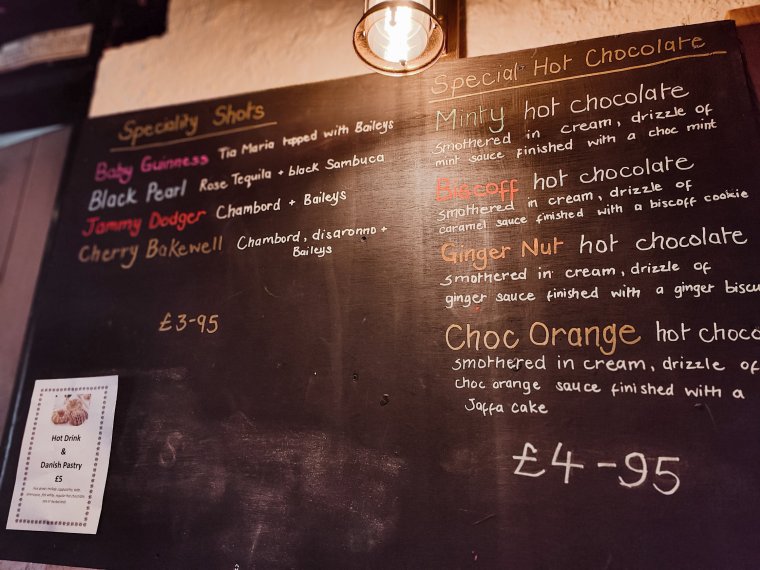 Speciality Shots
Baby Guinness Tia Maria topped with Baileys
Black Pearl Rose Tequila + black Sambuca
Jammy Dodger Chambord + Baileys
Cherry Bakewell Chambord, disaronno +
Baileys
£3-95
Hot Drink
&
Danish Pastry
£5
Special Hot Chocolate
Minty hot chocolate
smothered in cream, drizzle of
mint sauce finished with a choc mint
Biscoff hot chocolate
smothered in cream, drizzle of
caramel sauce finished with a biscoff cookie
Ginger Nut hot chocolate
smothered in cream, drizzle of
ginger sauce finished with a ginger biscu
Choc Orange hot choco
smothered in cream, drizzle of
choc orange sauce finished with a
Jaffa cake
£4-95